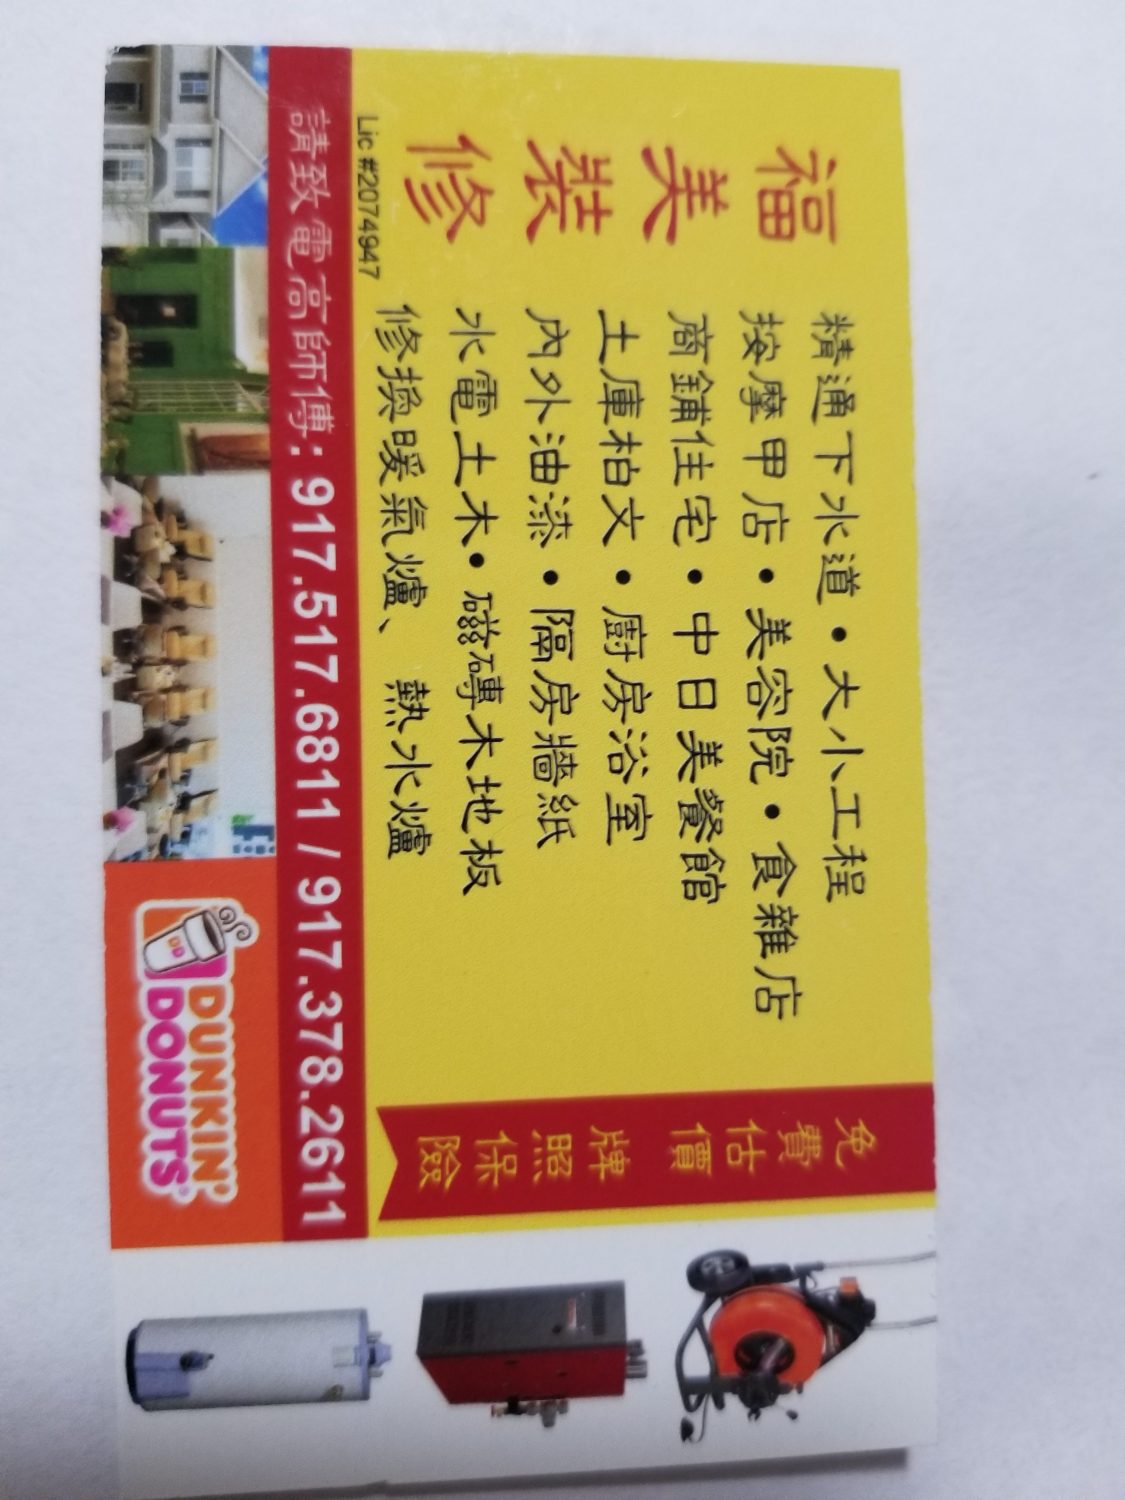 福美裝修
Lic #2074947
精通下水道 • 大小工程
按摩甲店 • 美容院 • 食雜店
商鋪住宅 • 中日美餐館
土庫柏文 • 廚房浴室
內外油漆 • 隔房牆紙
水電土木 • 磁磚木地板
修換暖氣爐、熱水爐
免費估價 牌照保險
請致電高師傅: 917.517.6811 / 917.378.2611
DD
DUNKIN'
DONUTS